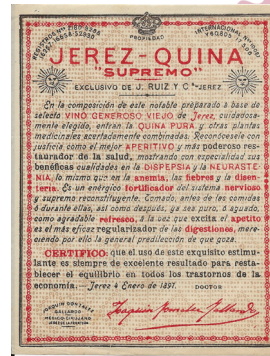 PROPIEDAD
INTERNACIONAL
JEREZ QUINA
"SUPREMO"
EXCLUSIVO DE J. RUIZ Y Cª JEREZ
En la composición de este notable preparado á base de
selecto VINO GENEROSO VIEJO de Jerez, cuidadosa-
mente elegido, entran la QUINA PURA y otras plantas
medicinales acertadamente combinadas. Recomiéndesele con
justicia como el mejor APERITIVO y más poderoso res-
taurador de la salud, mostrando con especialidad sus
benéficas cualidades en la DISPEPSIA y la NEURASTE-
NIA, lo mismo que en la anemia, las fiebres y la disen-
tería. Es un enérgico fortificador del sistema nervioso
y supremo reconstituyente. Tomado, antes de las comidas
ó durante ellas, así como después, ya sea puro, ó aguado,
como agradable refresco, á la vez que excita el apetito
es el más eficaz regularizador de las digestiones, mere-
ciendo por ello la general predilección de que goza.
CERTIFICO: que el uso de este exquisito estimu-
lante es siempre de excelente resultado para resta-
blecer el equilibrio en todos los trastornos de la
economía. — Jerez 4 Enero de 1897. DOCTOR
JOAQUIN GONZALEZ
GALLARDO
MEDICO-CIRUJANO
JEREZ DE LA FRONTERA
Joaquin Gonzalez Gallardo